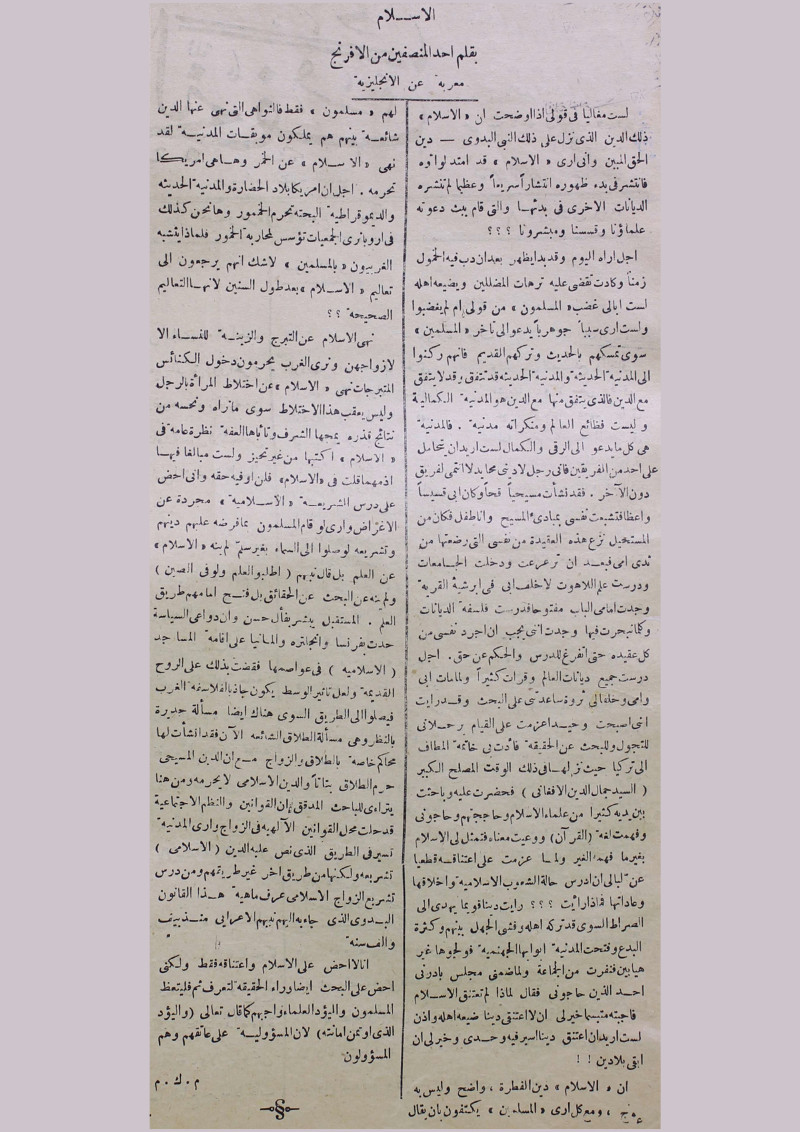 الاســلام
بقلم احد المنصفين من الافرنج
معربة عن الانجليزية
لست مغاليا فى قولى اذا اوضحت ان « الاسلام »
ذلك الدين الذى نزل على ذلك النبى البدوى — دين
الحق المبين وانى ارى « الاسلام » قد امتد لواؤه
فانتشر فى بدء ظهوره انتشاراً سريعاً وعظيما لم تنشره
الديانات الاخرى فى بدئها والتى قام ببث دعوته
علماؤنا وقسسنا ومبشرونا ؟ ؟ ؟
اجل اراه اليوم وقد بدا يظهر بعد ان دب فيه الخمول
زمناً وكادت تقضى عليه ترهات المضللين ويضيعه اهله
لست ابالى غضب « المسلمون » من قولى ام لم يغضبوا
ولست ارى سبباً جوهرياً يدعو الى تاخر « المسلمين »
سوى تمسكهم بالحديث وتركهم القديم فانهم ركنوا
الى المدنية الحديثه والمدنية الحديثه قد تتفق وقد لا يتفق
مع الدين فالذى يتفق منها مع الدين هو المدنية الكمالية
وليست فظائع العالم ومنكراته مدنية . فالمدنية
هى كل ما يدعو الى الرقى والكمال لست اريد ان يتحامل
على احد من الفريقين فانى رجل لا دينى محايد لا انتمى لفريق
دون الآخر . فقد نشأت مسيحياً قحاً وكان ابى قسيساً
واعظا فتشبعت نفسى بمبادئ المسيح وانا طفل فكان من
المستحيل نزع هذه العقيدة من نفسى التى رضعتها من
ثدى امى فبعد ان ترعرعت ودخلت الجامعات
ودرست علم اللاهوت لاخلف ابى فى ابرشية القرية
وجدت امامى الباب مفتوحا فدرست فلسفة الديانات
وكلما تبحرت فيها وجدت انى يجب ان اجرد نفسى من
كل عقيده حتى اتفرغ للدرس والحكم عن حق . اجل
درست جميع ديانات العالم وقرات كثيراً ولما مات ابى
وامى وخلفا لى ثروة ساعدتنى على البحث وقد رايت
انى اصبحت وحيدا عزمت على القيام برحلاتى
للتجول وللبحث عن الحقيقة فأدت بى خاتمة المطاف
الى تركيا حيث نزلها فى ذلك الوقت المصلح الكبير
( السيد جمال الدين الافغانى ) فحضرت عليه وباحثت
بين يديه كثيرا من علماء الاسلام وحاججتهم وحاجونى
وفهمت لغة ( القرآن ) ووعيت معناه فتمثل لى الاسلام
بغير ما فهمه الغير ولما عزمت على اعتناقه قطعيا
عنّ لبالى ان ادرس حالة الشعوب الاسلامية واخلاقها
وعاداتها فماذا رأيت ؟ ؟ ؟ رايت دينا قويما يهدى الى
الصراط السوى قد تركه اهله وفشى الجهل بينهم وكثرة
البدع وفتحت المدنية ابوابها الجهنمية فولجوها غير
هيابين فنفرت من الجماعة ولما ضمنى مجلس بادرنى
احد الذين حاجونى فقال لماذا لم تعتنق الاسلام
فاجبته متبسما خير لى ان لا اعتنق دينا ضيعه اهله واذن
لست اريد ان اعتنق دينا اسير فيه وحدى وخير لى ان
ابقى بلا دين ! !
ان « الاسلام » دين الفطرة ، واضح وليس به
عوج ، ومع كل ارى « المسلمين » يكتفون بان يقال
لهم « مسلمون » فقط فالنواهى التى نهى عنها الدين
شائعة بينهم هم يملكون موبقات المدنية لقد
نهى « الاسلام » عن الخمر وهاهى امريكا
تحرمه . اجل ان امريكا بلاد الحضارة والمدنية الحديثه
والديموقراطية البحته تحرم الخمور وها نحن كذلك
فى اروبا نرى الجمعيات تؤسس لمحاربة الخمور فلماذا يتشبه
الغربيون « بالمسلمين » لاشك انهم يرجعون الى
تعاليم « الاسلام » بعد طول السنين لانها التعاليم
الصحيحة ؟ ؟
نهى الاسلام عن التبرج والزينة للنساء الا
لازواجهن ونرى الغرب يحرمون دخول الكنائس
المتبرجات نهى « الاسلام » عن اختلاط المرأة بالرجل
وليس يعقب هذا الاختلاط سوى مانراه ونحسه من
نتائج قذره يمجها الشرف وتاباها العفة نظرة عامة فى
« الاسلام » اكتبها من غير تحيز ولست مبالغا فيها
اذ مهما قلت فى « الاسلام » فلن اوفيه حقه وانى احض
على درس الشريعة « الاسلامية » مجردة عن
الاغراض وارى لو قام المسلمون بما فرضه عليهم دينهم
وتشريعه لوصلوا الى السماء بغير سلم لم ينه « الاسلام »
عن العلم بل قال نبيهم ( اطلبو العلم ولو فى الصين )
ولم ينه عن البحث عن الحقائق بل فتح امامهم طريق
العلم . المستقبل يبشر بفأل حسن وان دواعى السياسة
حدت بفرنسا وانجلتره والمانيا على اقامة المساجد
( الاسلاميه ) فى عواصمها فقضت بذلك على الروح
القديمة ولعل تاثير الوسط يكون جاذبا فلاسفة الغرب
فيصلوا الى الطريق السوى هناك ايضا مسألة جديرة
بالنظر وهى مسألة الطلاق الشائعه الآن فقد انشأت لها
محاكم خاصة بالطلاق والزواج مع ان الدين المسيحى
حرم الطلاق بتاتاً والدين الاسلامى لا يحرمه ومن هنا
يتراءى للباحث المدقق إن القوانين والنظم الاجتماعية
قد حلت محل القوانين الآلهيه فى الزواج وارى المدنية
تسير فى الطريق الذى نص عليه الدين ( الاسلامى )
تشريعه ولكنها من طريق اخر غير طريقتهم ومن درس
تشريع الزواج الاسلامى عرف ماهية هذا القانون
البدوى الذى جاء به اليهم نبيهم الاعرابى منذ نيف
والف سنة
انا لا احض على الاسلام واعتناقه فقط ولكنى
احض على البحث ايضا وراء الحقيقة لتعرف ثم فليتعظ
المسلمون واليؤد العلماء واجبهم كما قال تعالى ( واليؤد
الذى اوتمن امانته ) لان المسؤولية على عاتقهم وهم
المسؤولون
م . ك . م